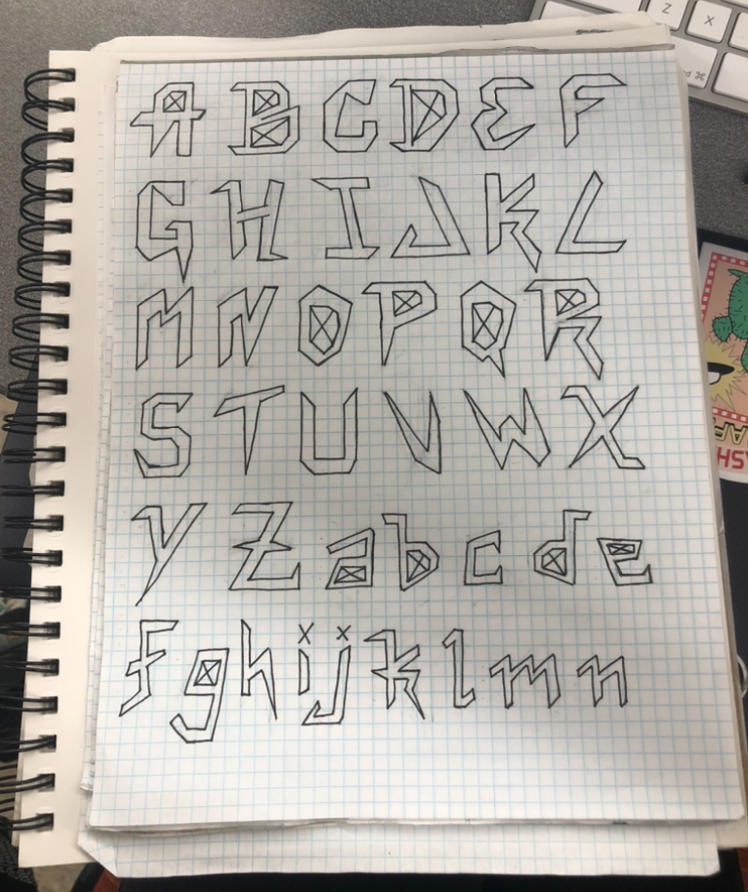 Z X
⌘
A B C D E F
G H I J K L
M N O P Q R
S T U V W X
Y Z a b c d e
f g h i j k l m n